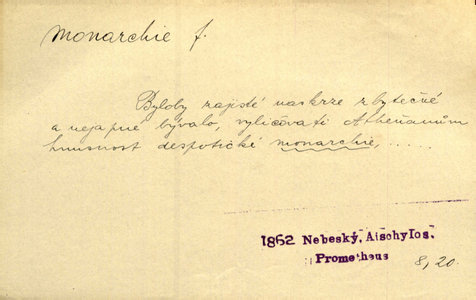 Monarchie f.
Byloby zajisté naskrze zbytečné
a nejapné bývalo, vyličovati Atheňanům
hnusnost despotické monarchie, .....
1862 Nebeský, Aischylos,
Prometheus 8, 20.